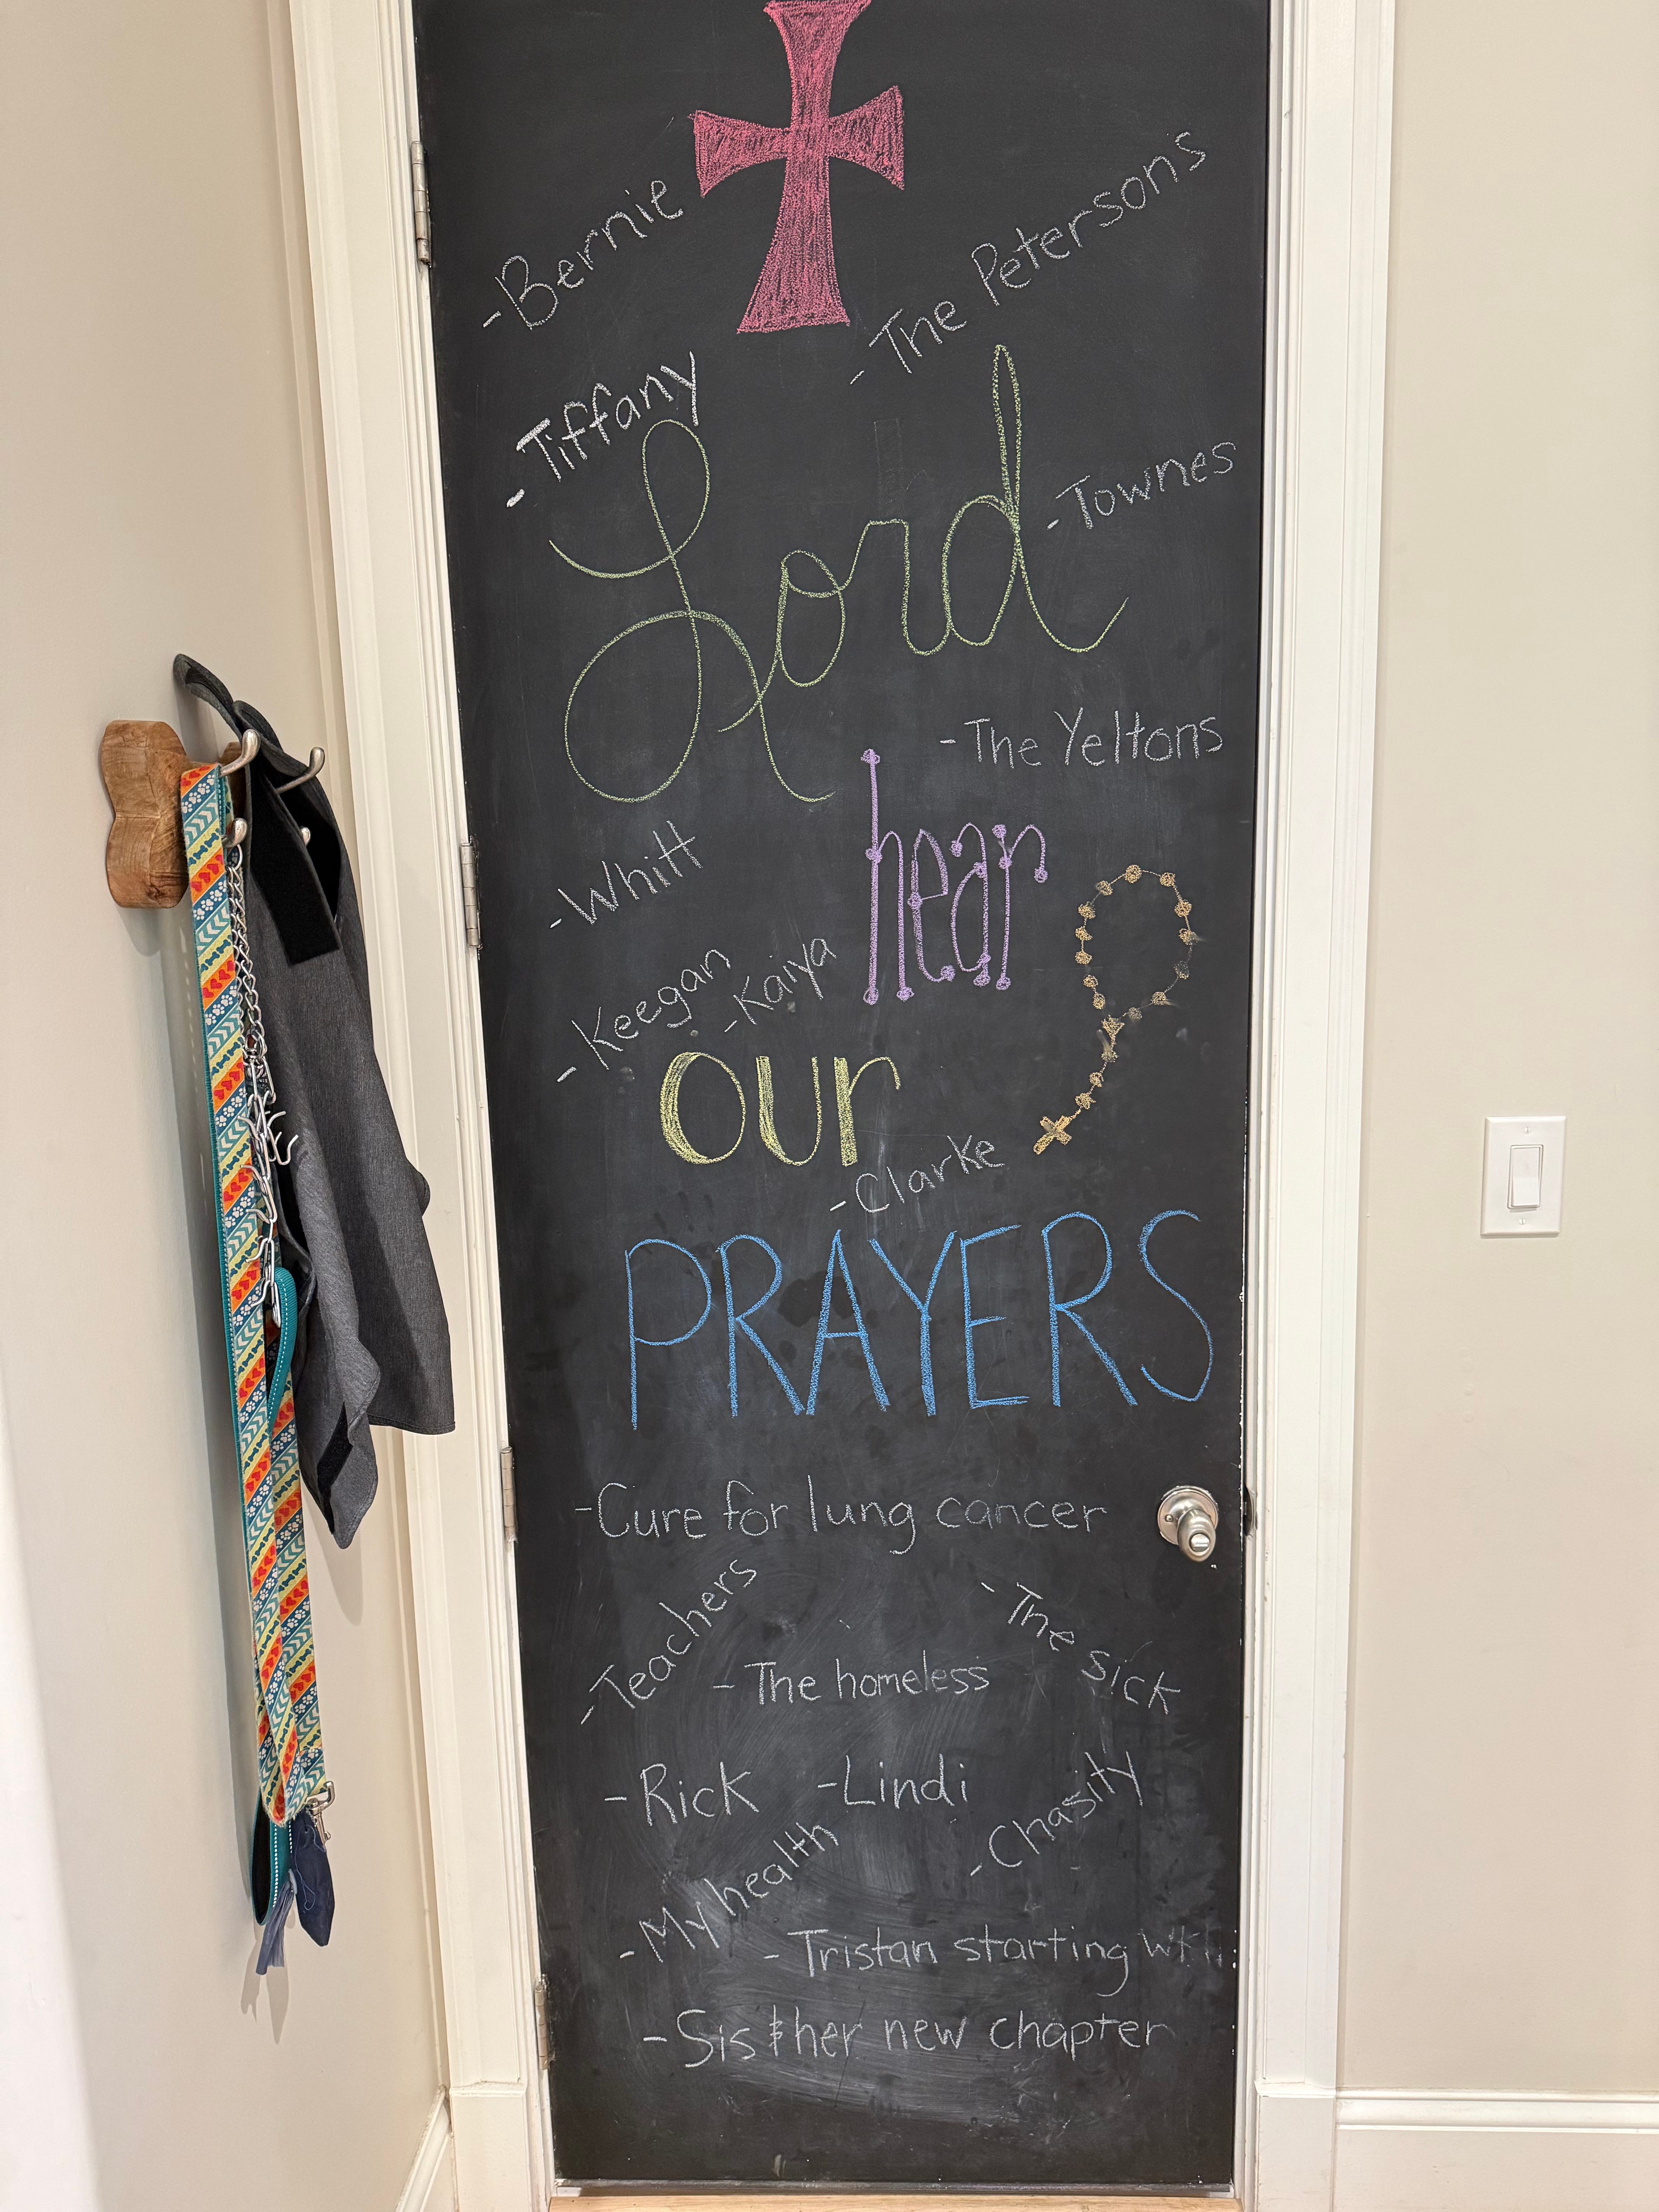 -Bernie
-The Petersons
-Tiffany
Lord
-Townes
-The Yeltons
hear
-Whitt
-Keegan
-Kaiya
our
-Clarke
PRAYERS
-Cure for lung cancer
-Teachers
-The sick
-The homeless
-Rick
-Lindi
-Chasity
-My health
-Tristan starting
-Sis & her new chapter